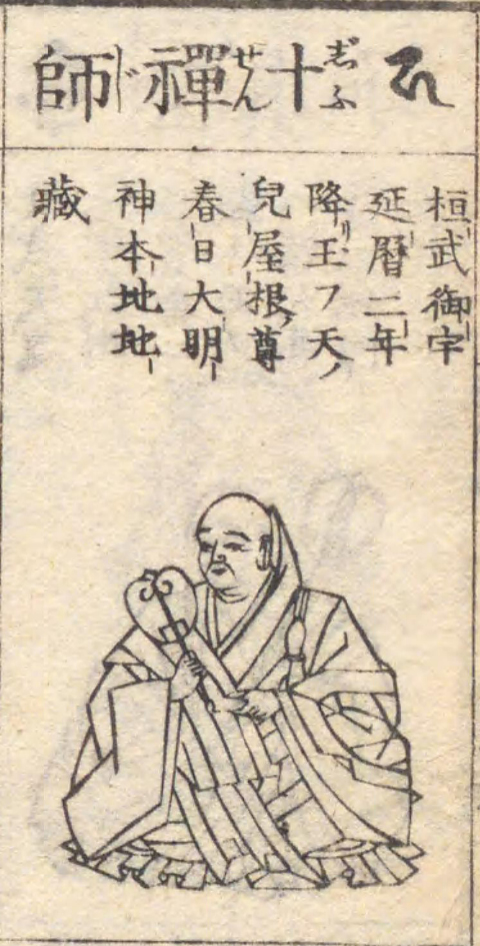 十禪師
じふせんじ
桓武御宇
延暦二年
降リ玉フ天ノ
兒屋根ノ尊
春日大明
神本地地
藏